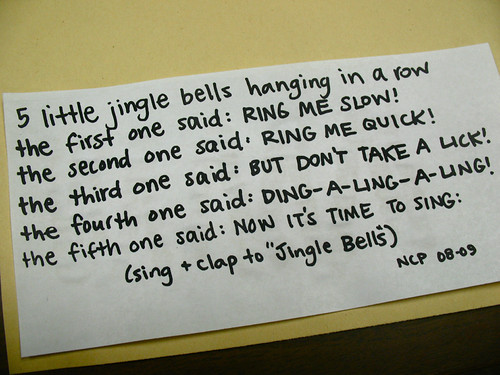 5 little jingle bells hanging in a row
the first one said: RING ME SLOW!
the second one said: RING ME QUICK!
the third one said: BUT DON'T TAKE A LICK!
the fourth one said: DING-A-LING-A-LING!
the fifth one said: NOW IT'S TIME TO SING:
(sing + clap to "Jingle Bells")
NCP 08-09